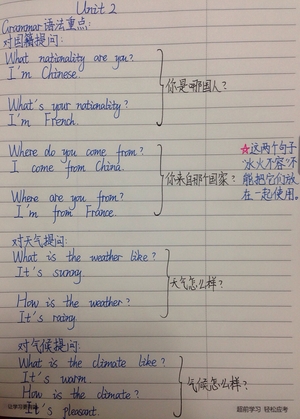 Unit 2
Grammar 语法重点:
对国籍提问:
What nationality are you?
I'm Chinese.
你是哪国人?
What's your nationality?
I'm French.
Where do you come from?
I come from China.
你来自那个国家?
Where are you from?
I'm from France.
☆这两个句子
"水火不容"不
能把它们放
在一起使用。
对天气提问:
What is the weather like?
It's sunny.
天气怎么样?
How is the weather?
It's rainy.
对气候提问:
What is the climate like?
It's warm.
气候怎么样?
How is the climate?
It's pleasant.
超前学习 轻松应考